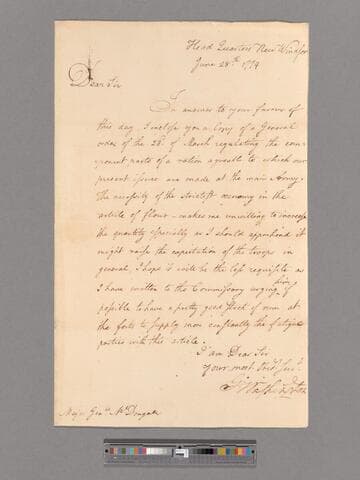 Head Quarters New Windsor
June 28th 1779
Dear Sir
In answer to your favor of
this day I inclose you a Copy of a General
order of the 28th of March regulating the com-
ponent parts of a ration agreeable to which our
present issues are made at the main Army.
The necessity of the strictest œconomy in the
article of flour – makes me unwilling to increase
the quantity specially as I should apprehend it
might raise the expectation of the troops in
general. I hope it will be the less requisite as
I have written to the Commissary urging him if
possible to have a pretty good stock of rum at
the forts to supply more constantly the fatigue
parties with this article.
I am Dear Sir
Your most Obdt Servt
G Washington
Major Genl McDougall